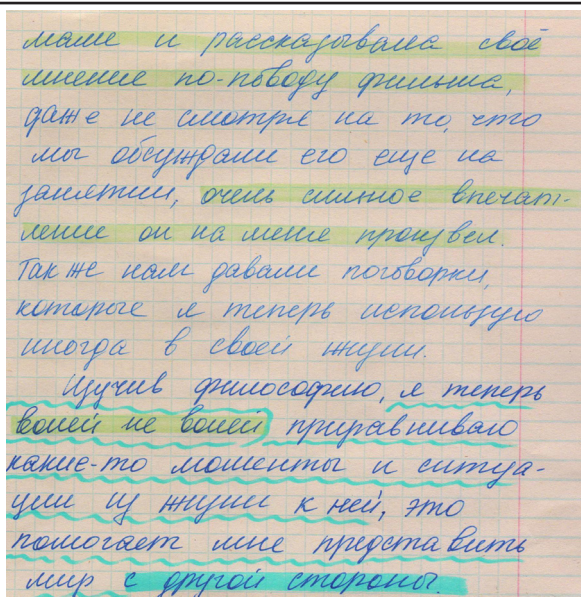 маме и рассказывала своё
мнение по-поводу фильма,
даже не смотря на то, что
мы обсуждали его еще на
занятии, очень сильное впечат-
ление он на меня произвел.
Так же нам давали поговорки,
которые я теперь использую
иногда в своей жизни.
Изучив философию, я теперь
волей не волей приравниваю
какие-то моменты и ситуа-
ции из жизни к ней, это
помогает мне представить
мир с другой стороны.